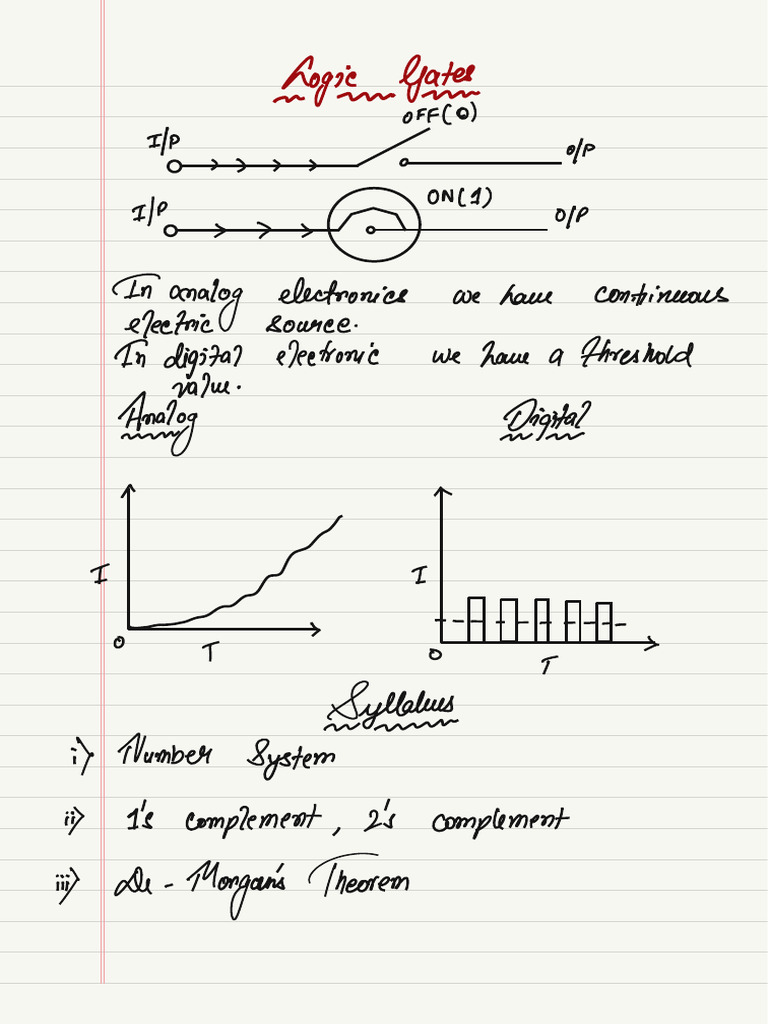 Logic Gates
OFF(0)
I/P
O/P
ON(1)
I/P
O/P
In analog electronics we have continuous
electric source.
In digital electronic we have a threshold
value.
Analog Digital
I I
O T
O T
Syllabus
i) Number System
ii) 1's complement, 2's complement
iii) De-Morgan's Theorem